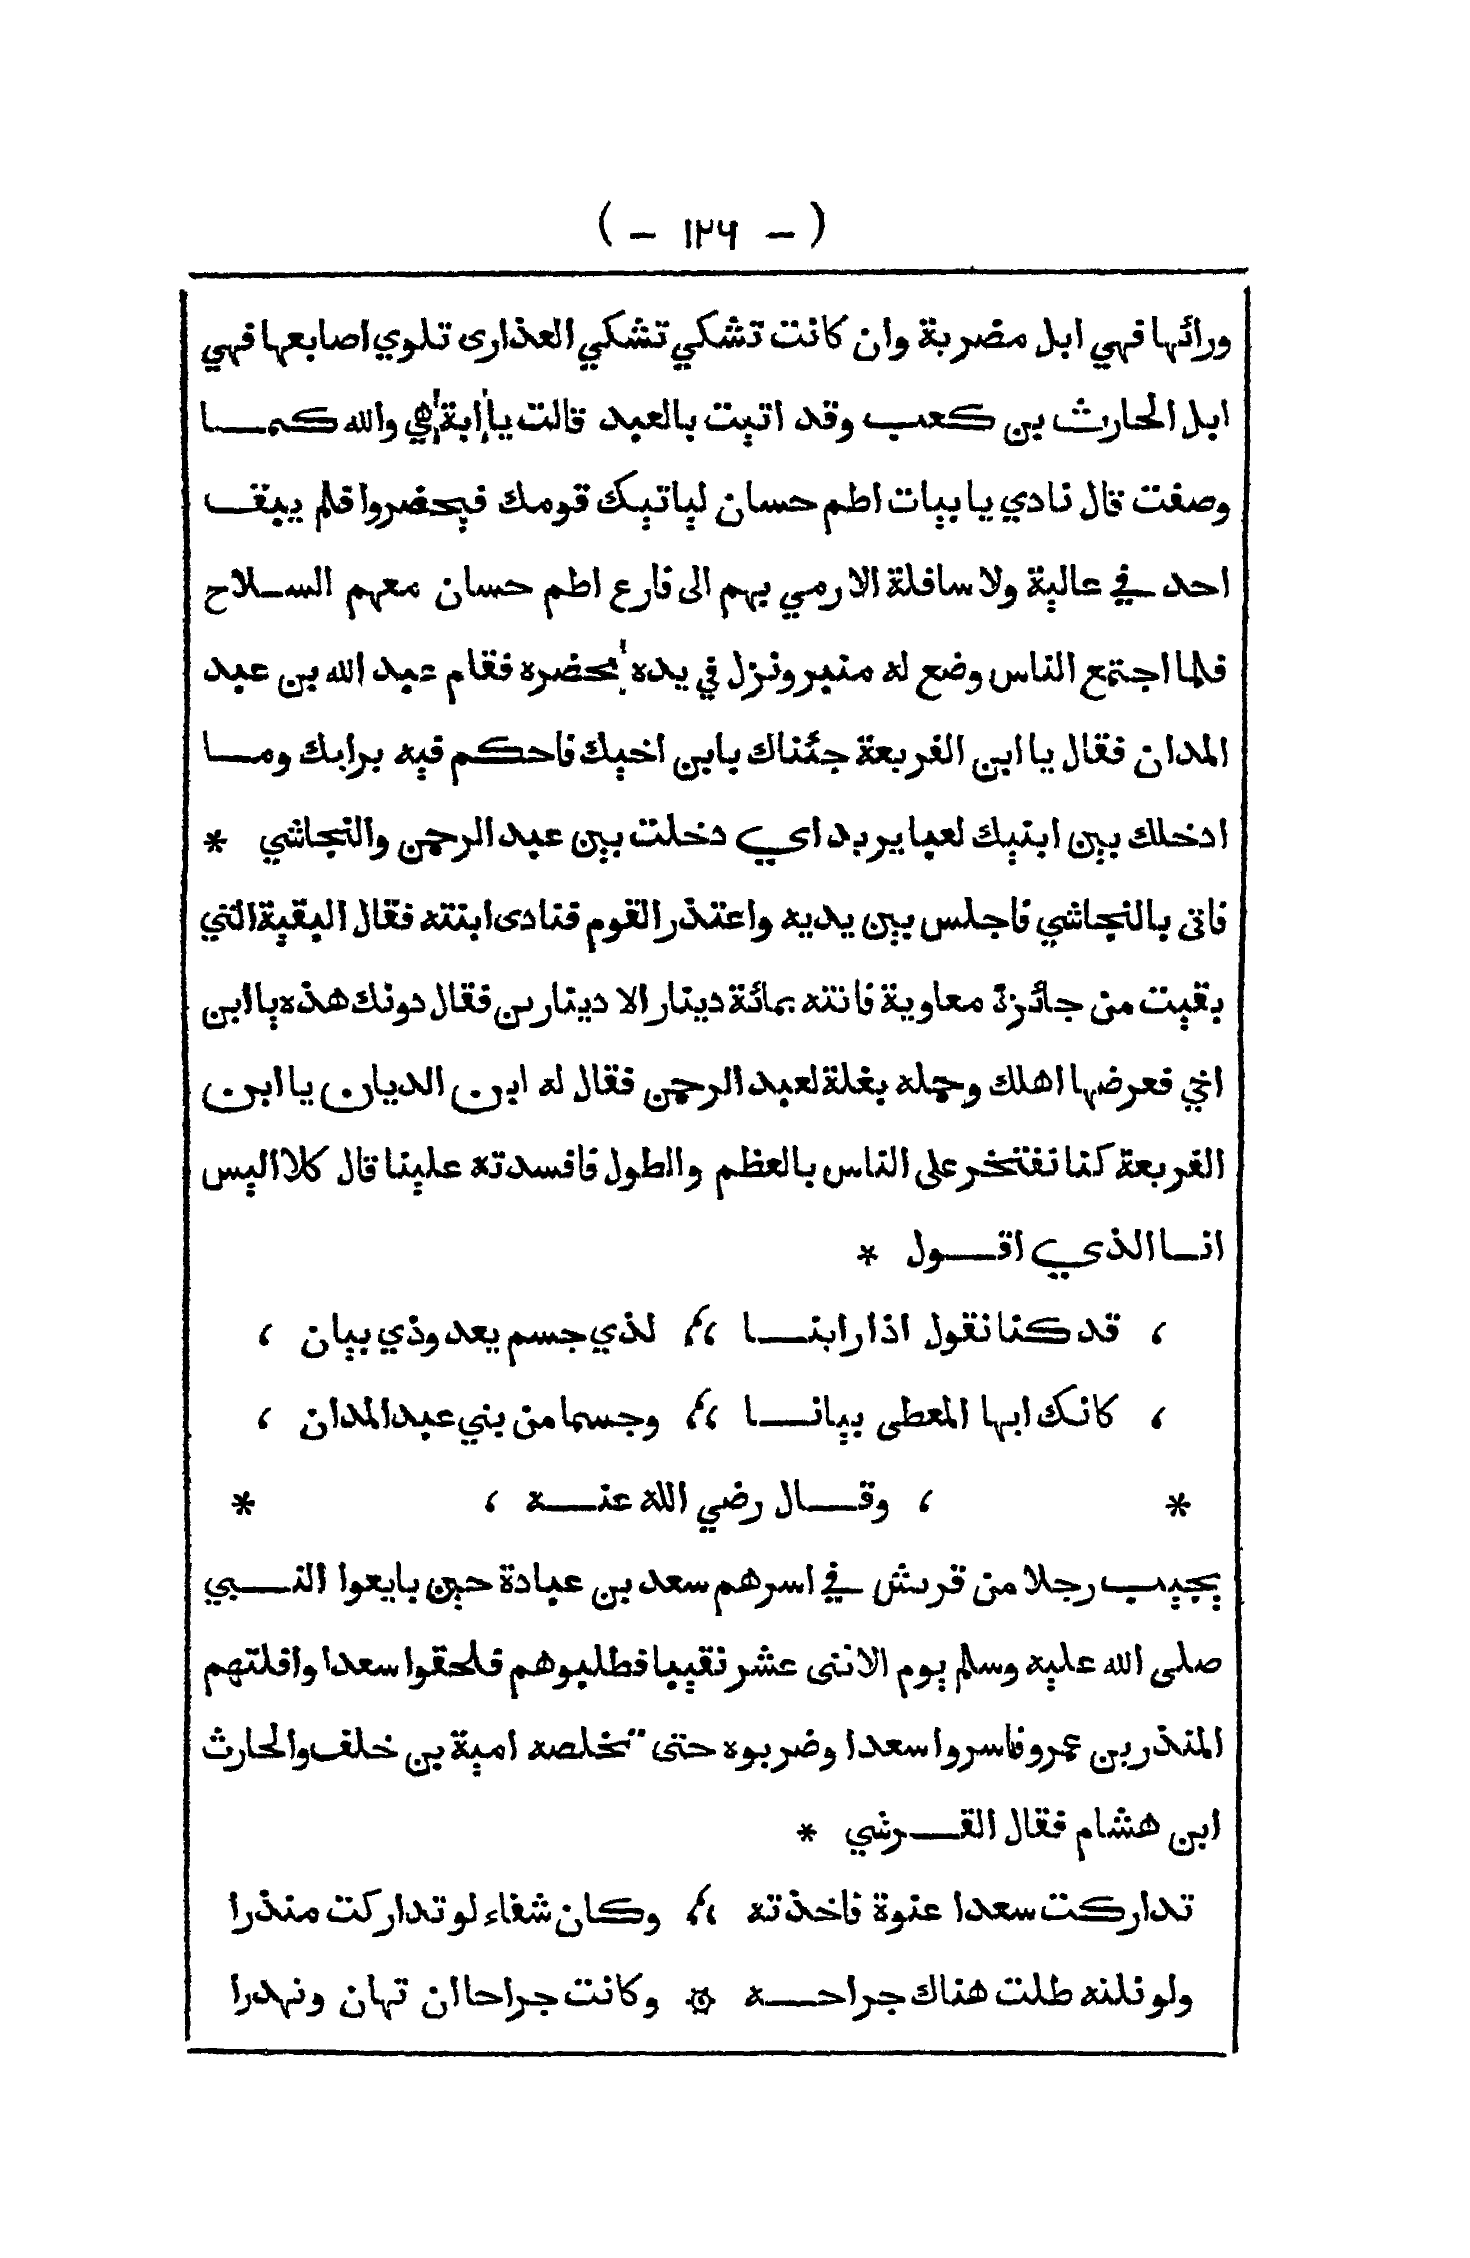 ( - ١٢٦ - )
ورائها فهي ابل مضربة وان كانت تشكي تشكي العذارى تلوي اصابعها فهي
ابل الحارث بن كعب وقد اتيت بالعبد قالت يا ابة هي والله كما
وصفت قال نادي يا بيات اطم حسان لياتيك قومك فيحضروا فلم يبق
احد في عالية ولا سافلة الا رمي بهم الى فارع اطم حسان معهم السلاح
فلما اجتمع الناس وضع له منبر ونزل في يده بحضره فقام عبد الله بن عبد
المدان فقال يا ابن الفريعة جئناك بابن اخيك فاحكم فيه برايك وما
ادخلك بين ابنيك لعبا يريد اي دخلت بين عبد الرحمن والنجاشي *
فاتى بالنجاشي فاجلس بين يديه واعتذر القوم فنادى ابنته فقال البقية التي
بقيت من جائزة معاوية فاتته بمائة دينار الا دينارين فقال دونك هذه يا ابن
اخي فعرضها اهلك وحمله بغلة لعبد الرحمن فقال له ابن الديان يا ابن
الفريعة كنا نفتخر على الناس بالعظم والطول فافسدته علينا قال كلا اليس
انا الذي اقول *
، قد كنا نقول اذا راينا ،، لذي جسم يعد وذي بيان ،
، كانك ايها المعطى بيانا ،، وجسما من بني عبد المدان ،
* ، وقال رضي الله عنه ، *
يجيب رجلا من قريش في اسرهم سعد بن عبادة حين بايعوا النبي
صلى الله عليه وسلم يوم الاثنى عشر نقيبا فطلبوهم فلحقوا سعدا وافلتهم
المنذر بن عمرو فاسروا سعدا وضربوه حتى تخلصه امية بن خلف والحارث
ابن هشام فقال القرشي *
تداركت سعدا عنوة فاخذته ،، وكان شفاء لو تداركت منذرا
ولو نلته طلت هناك جراحه ۞ وكانت جراحا ان تهان وتهدرا